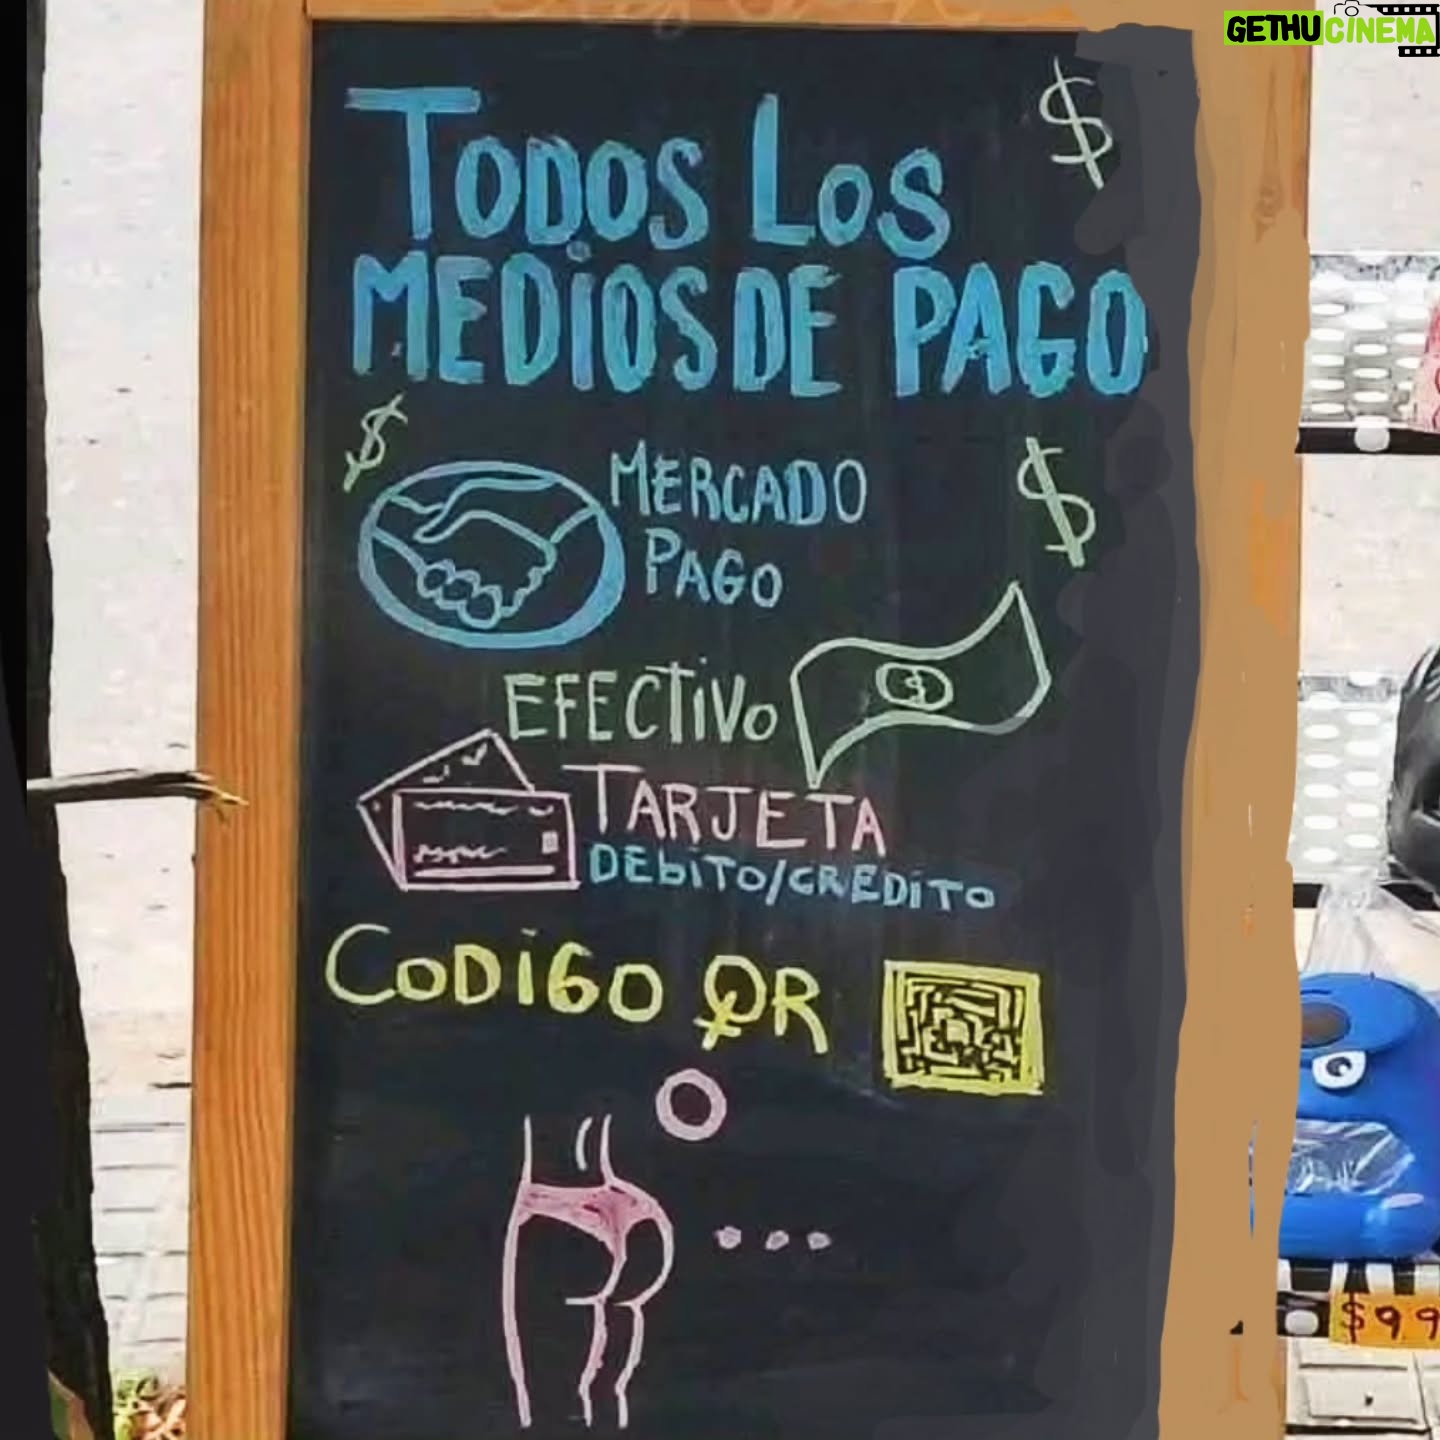 GETHUCINEMA
$
TODOS LOS
MEDIOS DE PAGO
$
$
MERCADO
PAGO
EFECTIVO
$
TARJETA
DEBITO/CREDITO
CODIGO QR
O
...
$99